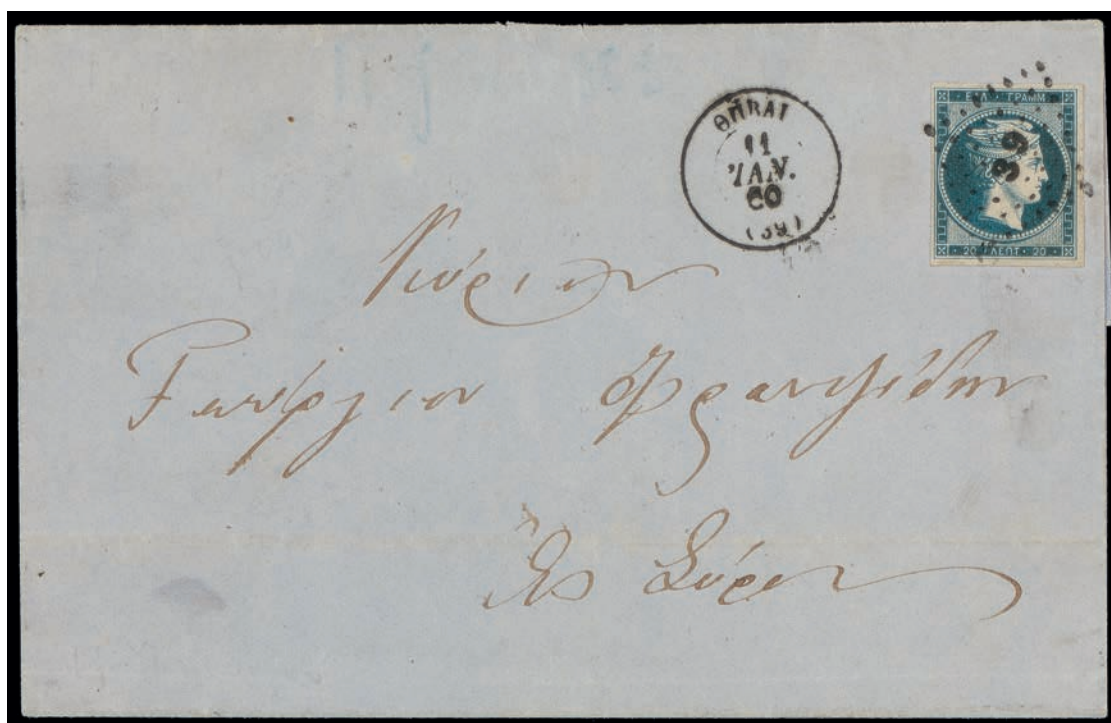 ΘΗΒΑΙ
11
ΊΑΝ.
60
(39)
ΕΛΛ · ΓΡΑΜΜ
39
20 ΛΕΠΤ · 20
Κύριον
Γεώργιον Φραντζίδην
Εἰς Σύρον